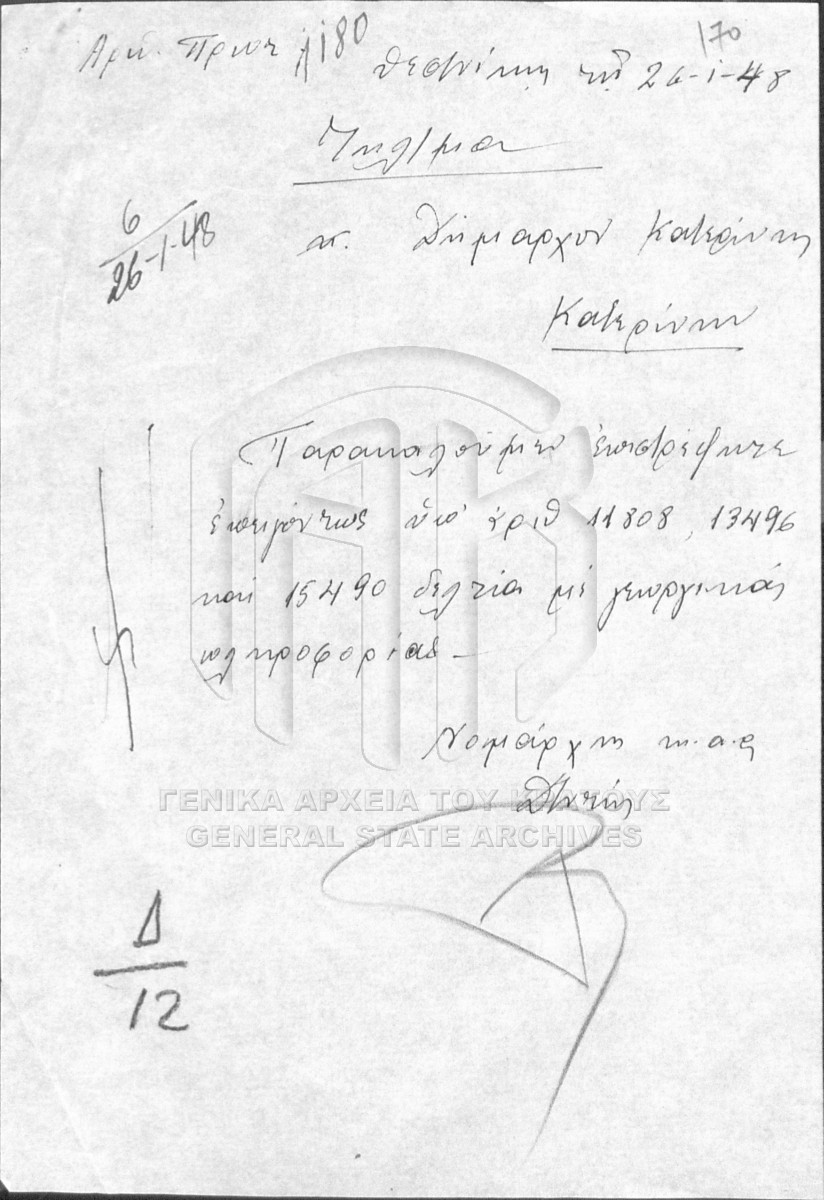 170
Αριθ. Πρωτ. 1180 Θεσ/νίκη τη 26-1-48
Τηλ/μα
6
26-1-48
κ. Δήμαρχον Κατερίνης
Κατερίνην
Παρακαλούμεν ἐπιστρέψητε
ἐπειγόντως ὑπ' ἀριθ 11808, 13496
καί 15490 δελτία μέ γεωργικάς
πληροφορίας -
Νομάρχης κ.α.α
ΓΕΝΙΚΑ ΑΡΧΕΙΑ ΤΟΥ ΚΡΑΤΟΥΣ
GENERAL STATE ARCHIVES
Δ
12